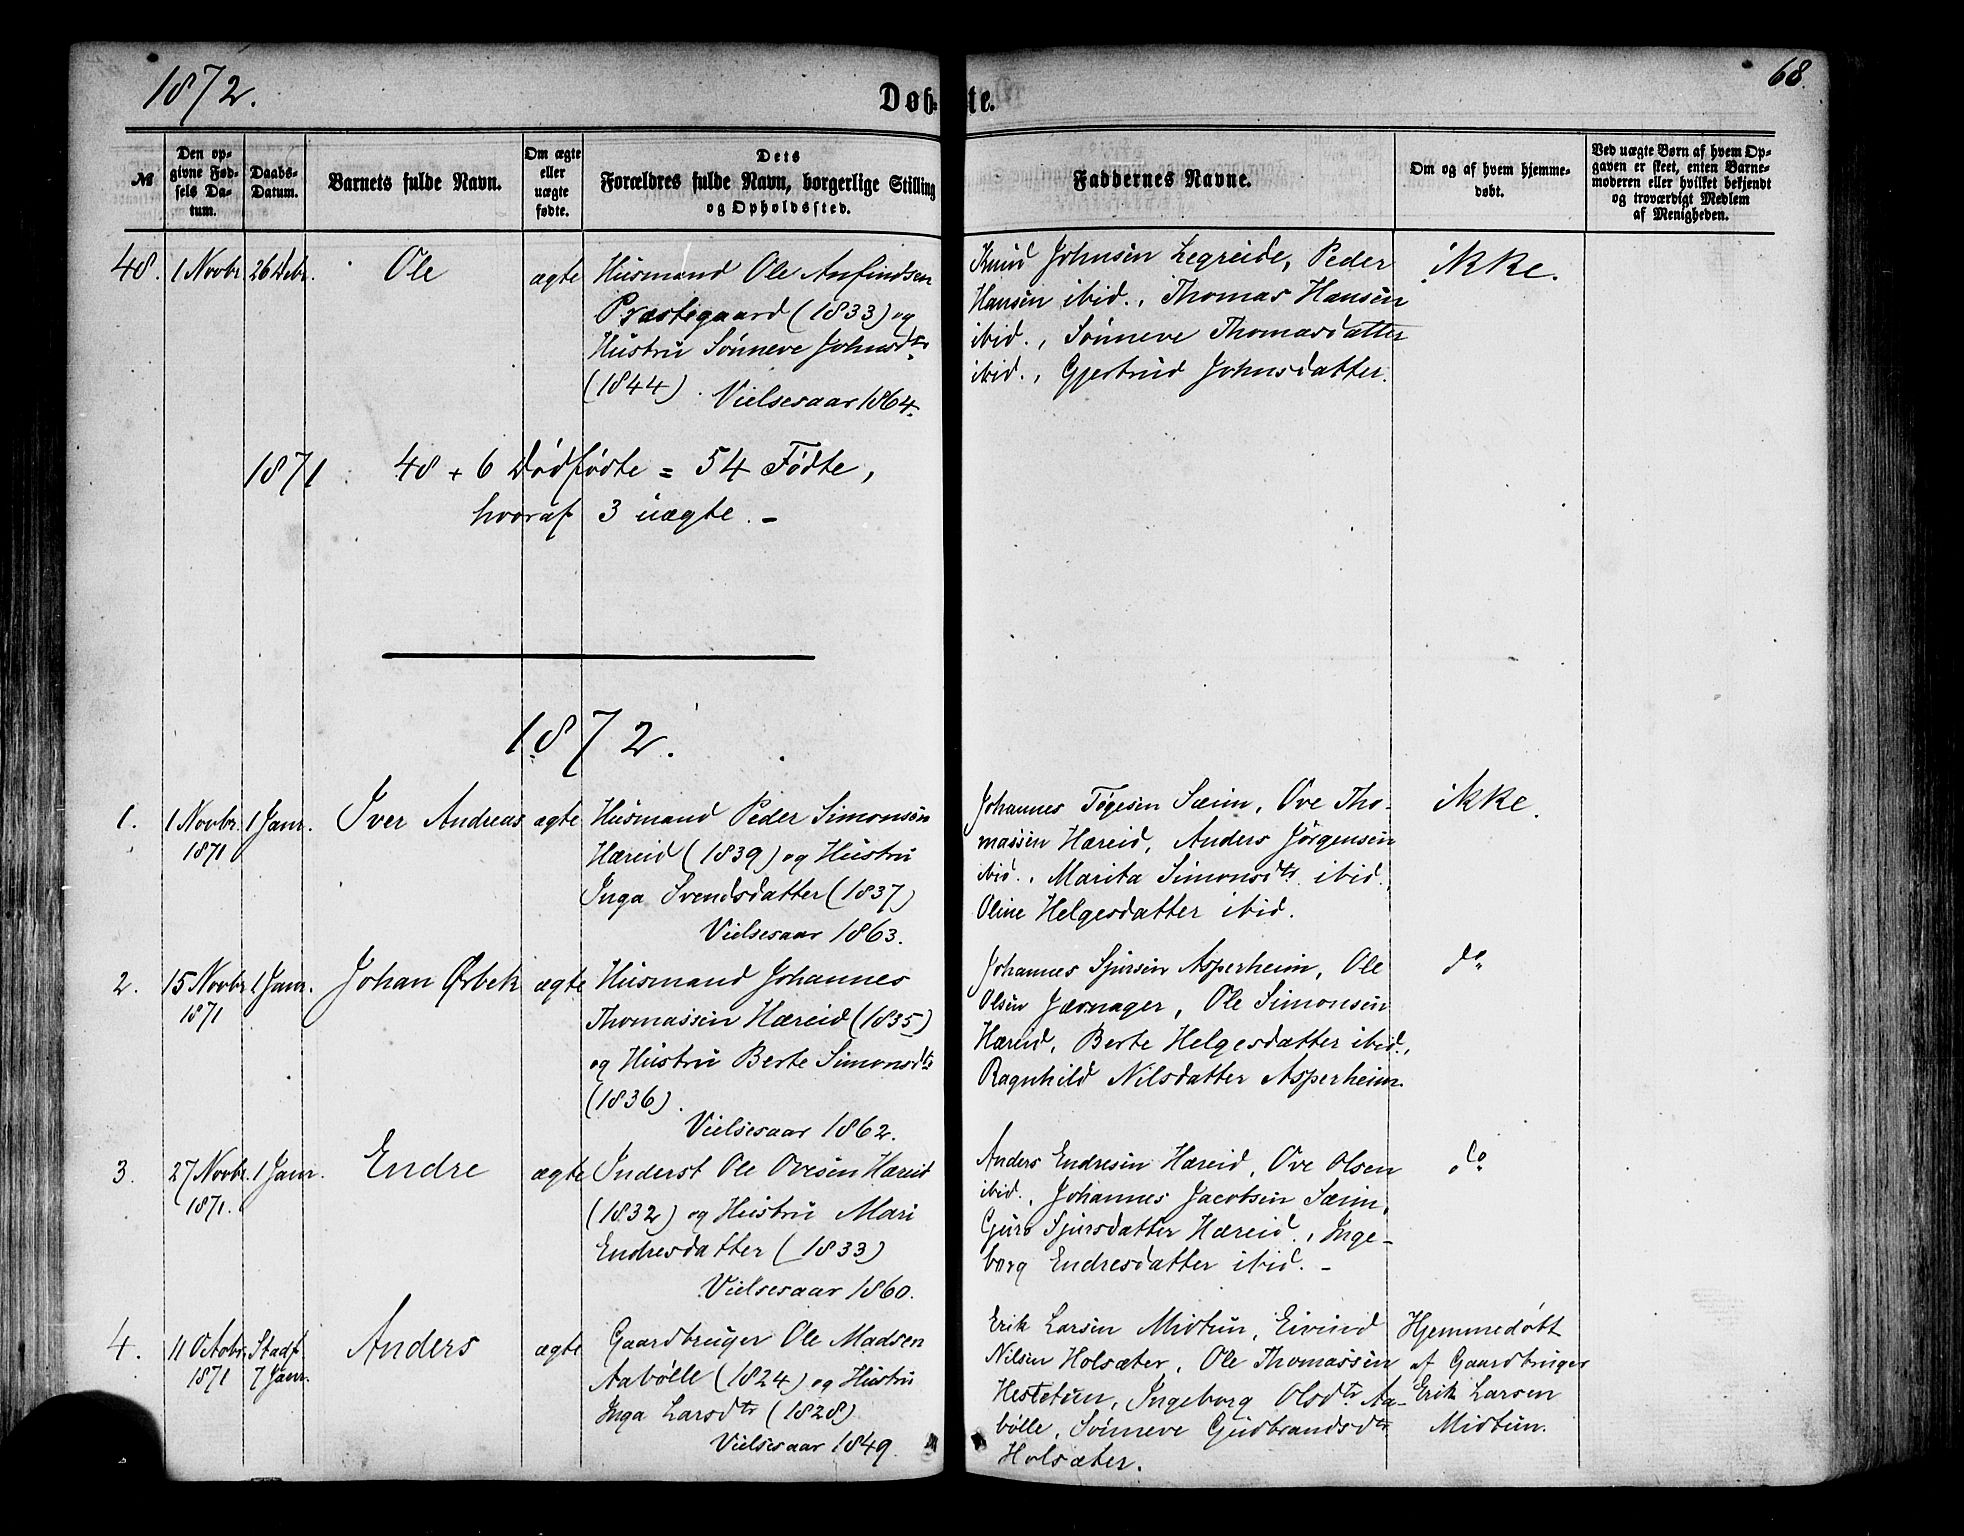 1872.
Døbte.
68.
№
Den op-
givne Fød-
sels Da-
tum.
Daabs-
Datum.
Barnets fulde Navn.
Om ægte
eller
uægte
fødte.
Dets
Forældres fulde Navn, borgerlige Stilling
og Opholdssted.
Faddernes Navne.
Om og af hvem hjemme-
døbt.
Ved uægte Børn af hvem Op-
gaven er skeet, enten Barne-
moderen eller hvilket bekjendt
og troværdigt Medlem
af Menigheden.
48.
1 Novbr.
26 Debr.
Ole
ægte
Husmand Ole Anfindsen
Præstegaard (1833) og
Hustru Sønneve Johnsdtr
(1844). Vielsesaar 1864.
Knud Johnsen Legreide, Peder
Hansen ibid., Thomas Hansen
ibid., Sønneve Thomasdatter
ibid., Gjertrud Johnsdatter.
ikke.
1871
48 + 6 Dødfødte = 54 Fødte,
hvoraf 3 uægte. -
1872.
1.
1 Novbr.
1871
1 Janr.
Iver Andreas
ægte
Husmand Peder Simonsen
Hæreid (1839) og Hustru
Inga Svendsdatter (1837)
Vielsesaar 1863.
Johannes Tøgesen Sæim, Ove Tho-
massen Hæreid, Anders Jørgensen
ibid., Marita Simonsdtr ibid.,
Oline Helgesdatter ibid.
ikke.
2.
15 Novbr.
1871
1 Janr.
Johan Ørbek
ægte
Husmand Johannes
Thomassen Hæreid (1835)
og Hustru Berte Simonsdtr
(1836).
Vielsesaar 1862.
Johannes Sjursen Asperheim, Ole
Olsen Jærnager, Ole Simonsen
Hæreid, Berte Helgesdatter ibid.,
Ragnhild Nilsdatter Asperheim.
do
3.
27 Novbr.
1871.
1 Janr.
Endre
ægte
Inderst Ole Ovesen Hæreid
(1832) og Hustru Mari
Endresdatter (1833)
Vielsesaar 1860.
Anders Endresen Hæreid, Ove Olsen
ibid., Johannes Jacobsen Sæim,
Guro Sjursdatter Hæreid, Inge-
borg Endresdatter ibid. -
do
4.
11 Octobr.
1871
Stadf.
7 Janr.
Anders
ægte
Gaardbruger Ole Madsen
Aabølle (1824) og Hustru
Inga Larsdtr (1828)
Vielsesaar 1849.
Erik Larsen Midtun, Eivind
Nilsen Holsæter, Ole Thomassen
Hestetun, Ingeborg Olsdtr Aa-
bølle, Sønneve Gudbrandsdtr
Holsæter.
Hjemmedøbt
af Gaardbruger
Erik Larsen
Midtun.